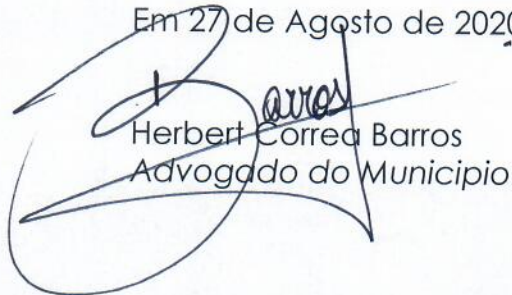 Em 27 de Agosto de 2020
Barros
Herbert Correa Barros
Advogado do Municipio